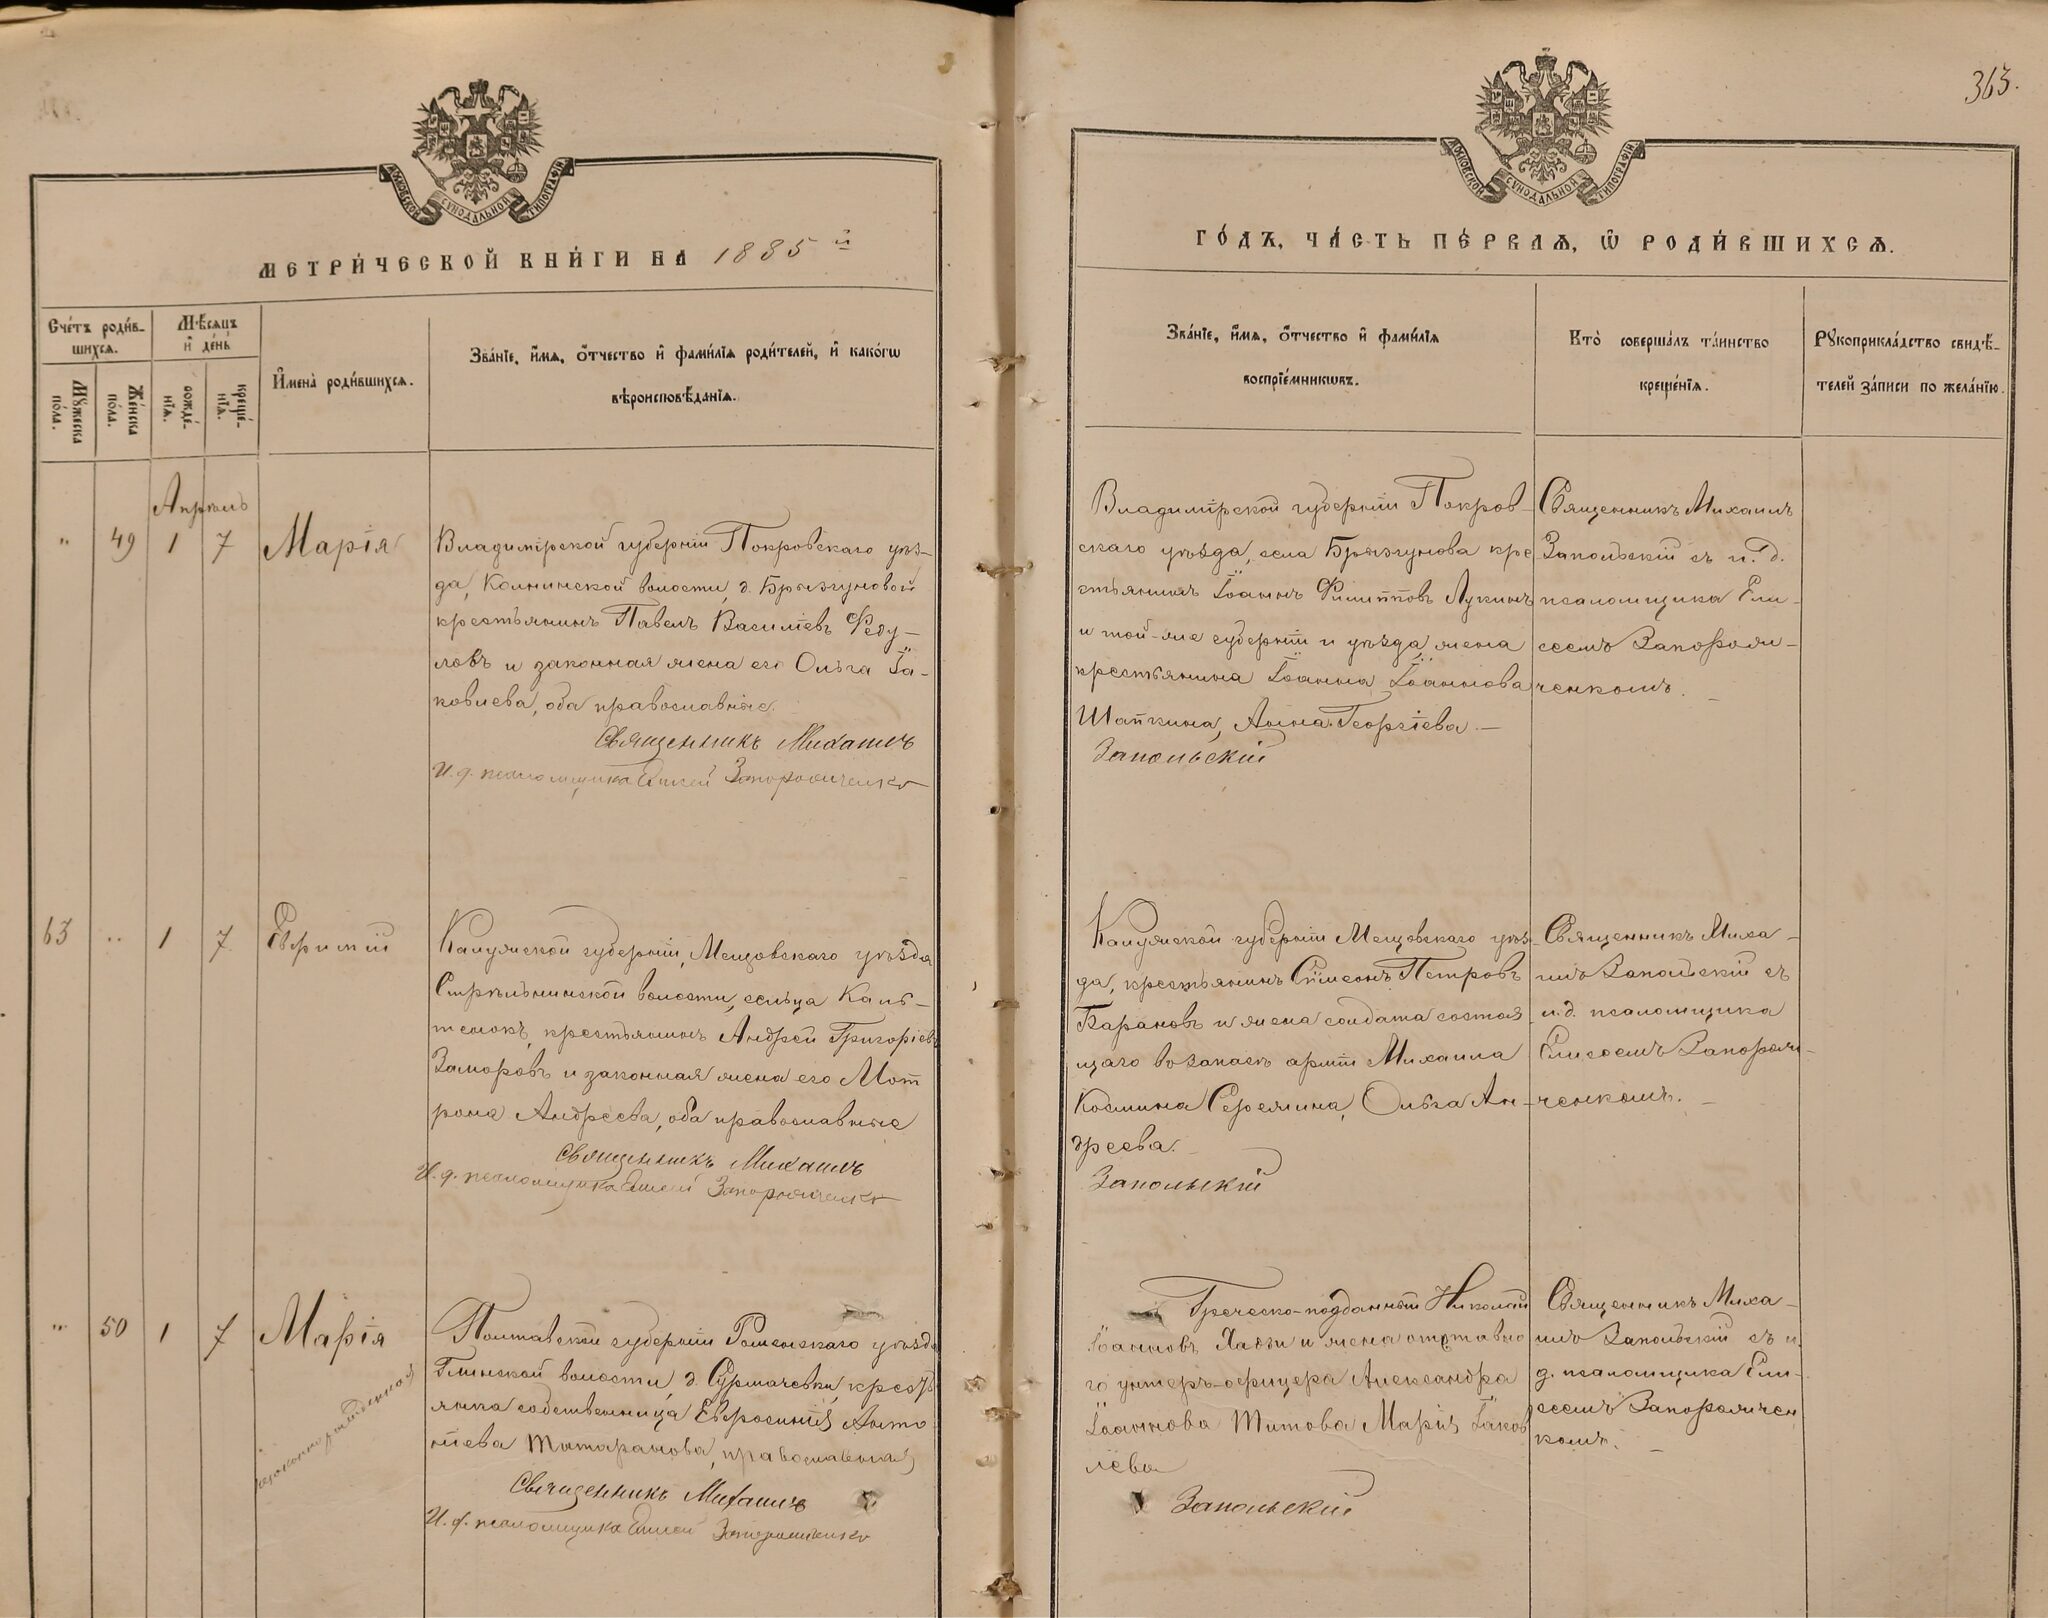 363.
МОСКОВСКОЙ СѴНОДАЛЬНОЙ ТИПОГРАФІИ
МОСКОВСКОЙ СѴНОДАЛЬНОЙ ТИПОГРАФІИ
МЕТРИ́ЧЕСКОЙ КНИ́ГИ НА 1885й
ГО́ДЪ, ЧА́СТЬ ПЕ́РВАѦ, Ѡ РОДИ́ВШИХСѦ.
Сче́тъ роди́в-
шихсѧ.
Мѣ́сѧцъ
и҆ де́нь
Мꙋ́жеска
по́ла.
Же́нска
по́ла.
рожде́-
нїѧ.
креще́-
нїѧ.
И҆мена̀ роди́вшихсѧ.
Зва́нїе, и҆́мѧ, о҆́тчество и҆ фами́лїѧ роди́телей, и҆ како́гѡ
вѣроисповѣ́данїѧ.
Зва́нїе, и҆́мѧ, о҆́тчество и҆ фами́лїѧ
воспрїе́мникѡвъ.
Кто̀ соверша́лъ та́инство
креще́нїѧ.
Рꙋкоприкла́дство свидѣ́-
телей за́писи по жела́нїю.
Апрѣль
" 49 1 7 Марія
Владимірской губерніи Покровскаго уѣз-
да, волости, д. Брызгуновой
крестьянинъ Павелъ Василіевъ Феду-
ловъ и законная жена его Ольга Іа-
ковлева, оба православные.
Священникъ Михаилъ
И. д. псаломщика Елисей Запорожченко
Владимірской губерніи Покров-
скаго уѣзда, села Брызгунова кре-
стьянинъ Іоаннъ Филипповъ Лукинъ
и той-же губерніи и уѣзда, жена
крестьянина Іоанна Іоаннова
Шапкина, Анна Георгіева.
Запольскій
Священникъ Михаилъ
Запольскій съ и. д.
псаломщика Ели-
сеемъ Запорож-
ченкомъ.
63 " 1 7 Евѳимій
Калужской губерніи, Мещовскаго уѣзда
волости, сельца
крестьянинъ Андрей Григоріевъ
Заморовъ и законная жена его Мот
рона Андреева, оба православные
Священникъ Михаилъ
И. д. псаломщика Елисей Запорожченко
Калужской губерніи Мещовскаго уѣз-
да, крестьянинъ Симеонъ Петровъ
Барановъ и жена солдата состоя
щаго въ запасѣ арміи Михаила
Космина Ольга Ан-
дреева.
Запольскій
Священникъ Миха-
илъ Запольскій съ
и. д. псаломщика
Елисеемъ Запорож-
ченкомъ.
" 50 1 7 Марія
незаконнорожденная
Полтавской губерніи Роменскаго уѣзда
Глинской волости, д. Сурмачевки, крестьян-
янка собственница Евфросинія Анто-
ніева православная
Священникъ Михаилъ
И. д. псаломщика Елисей Запорожченко
Греческо-подданный Николай
Іоанновъ Хаджи и жена отставна
го унтеръ-офицера Александра
Іоаннова Титова Марія Іаков
лева
Запольскій
Священникъ Миха-
илъ Запольскій съ и.
д. псаломщика Ели-
сеемъ Запорожчен
комъ.